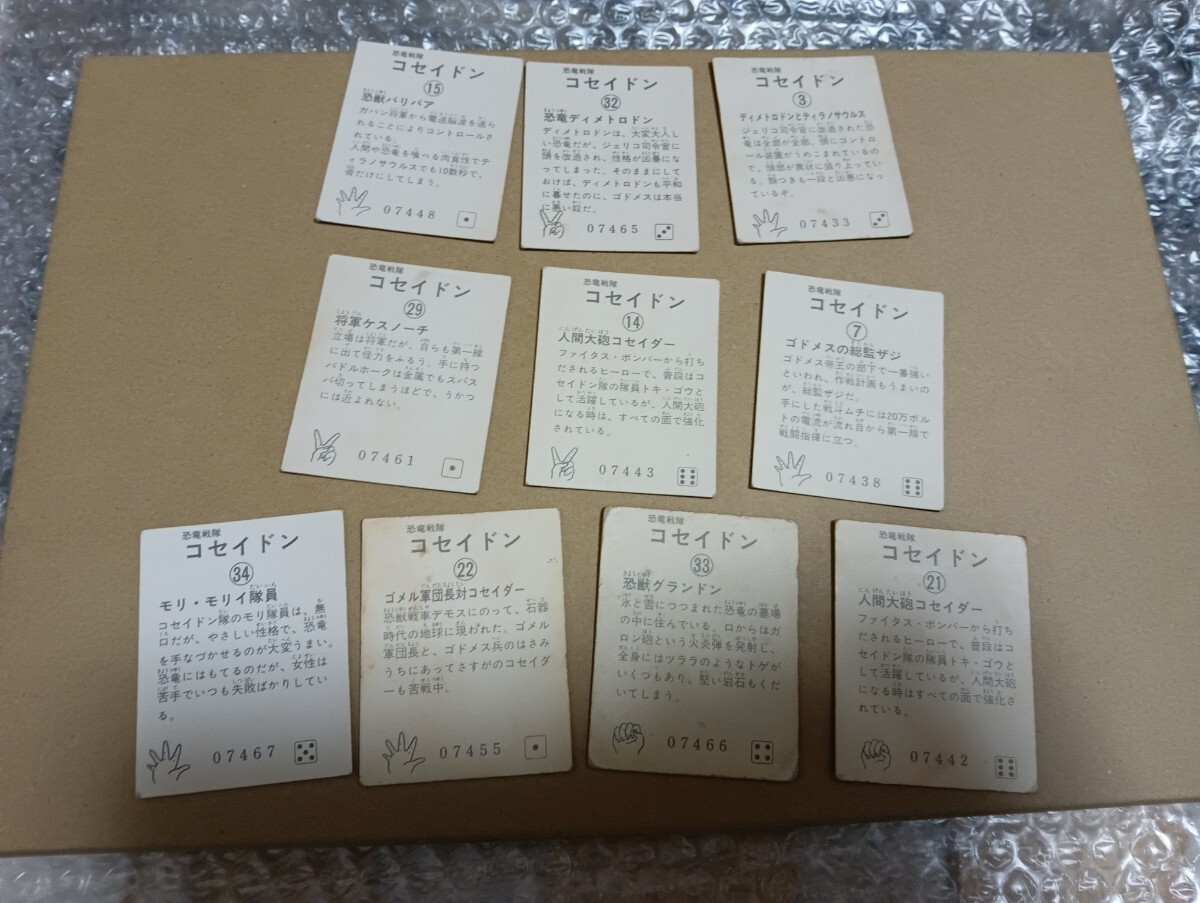 恐竜戦隊
コセイドン
⑮
恐獣バリバア
ガバン将軍から電送脳波を送ら
れることによりコントロールさ
れている。
人間や恐竜を喰べる肉食性でテ
ィラノサウルスでも10数秒で、
骨だけにしてしまう。
07448
恐竜戦隊
コセイドン
㉜
恐竜ディメトロドン
ディメトロドンは、大変大人し
い恐竜だが、ジェリコ司令官に
頭を改造され、性格が凶暴にな
ってしまった。そのままにして
おけば、ディメトロドンも平和
に暮せたのに、ゴドメスは本当
に悪い奴だ。
07465
恐竜戦隊
コセイドン
③
ディメトロドンとティラノサウルス
ジェリコ司令官に改造された恐
竜は全部が全部、頭にコントロ
ール装置がうめこまれているの
で、頭部が異状に盛り上ってい
る。顔つきも一段と凶悪になっ
ているぞ。
07433
恐竜戦隊
コセイドン
㉙
将軍ケスノーチ
立場は将軍だが、自らも第一線
に出て怪力をふるう。手に持つ
バドルホークは金属でもスパス
パ切ってしまうほどで、うかつ
には近よれない。
07461
恐竜戦隊
コセイドン
⑭
人間大砲コセイダー
ファイタス・ボンバーから打ち
だされるヒーローで、普段はコ
セイドン隊の隊員トキ・ゴウと
して活躍しているが、人間大砲
になる時は、すべての面で強化
されている。
07443
恐竜戦隊
コセイドン
⑦
ゴドメスの総監ザジ
ゴドメス帝王の部下で一番強い
といわれ、作戦計画もうまいの
が、総監ザジだ。
手にした戦斗ムチには20万ボル
トの電流が流れ自から第一線で
戦闘指揮に立つ。
07438
恐竜戦隊
コセイドン
㉞
モリ・モリイ隊員
コセイドン隊のモリ隊員は、無
口だが、やさしい性格で、恐竜
を手なづかせるのが大変うまい。
恐竜にはもてるのだが、女性は
苦手でいつも失敗ばかりしてい
る。
07467
恐竜戦隊
コセイドン
㉒
ゴメル軍団長対コセイダー
恐獣戦車デモスにのって、石器
時代の地球に現われた。ゴメル
軍団長と、ゴドメス兵のはさみ
うちにあってさすがのコセイダ
ーも苦戦中。
07455
恐竜戦隊
コセイドン
㉝
恐獣グランドン
氷と雪につつまれた恐竜の墓場
の中に住んでいる。口からはガ
ロン砲という火炎弾を発射し、
全身にはツララのようなトゲが
いくつもあり、堅い岩石もくだ
いてしまう。
07466
恐竜戦隊
コセイドン
㉑
人間大砲コセイダー
ファイタス・ボンバーから打ち
だされるヒーローで、普段はコ
セイドン隊の隊員トキ・ゴウと
して活躍しているが、人間大砲
になる時はすべての面で強化さ
れている。
07442